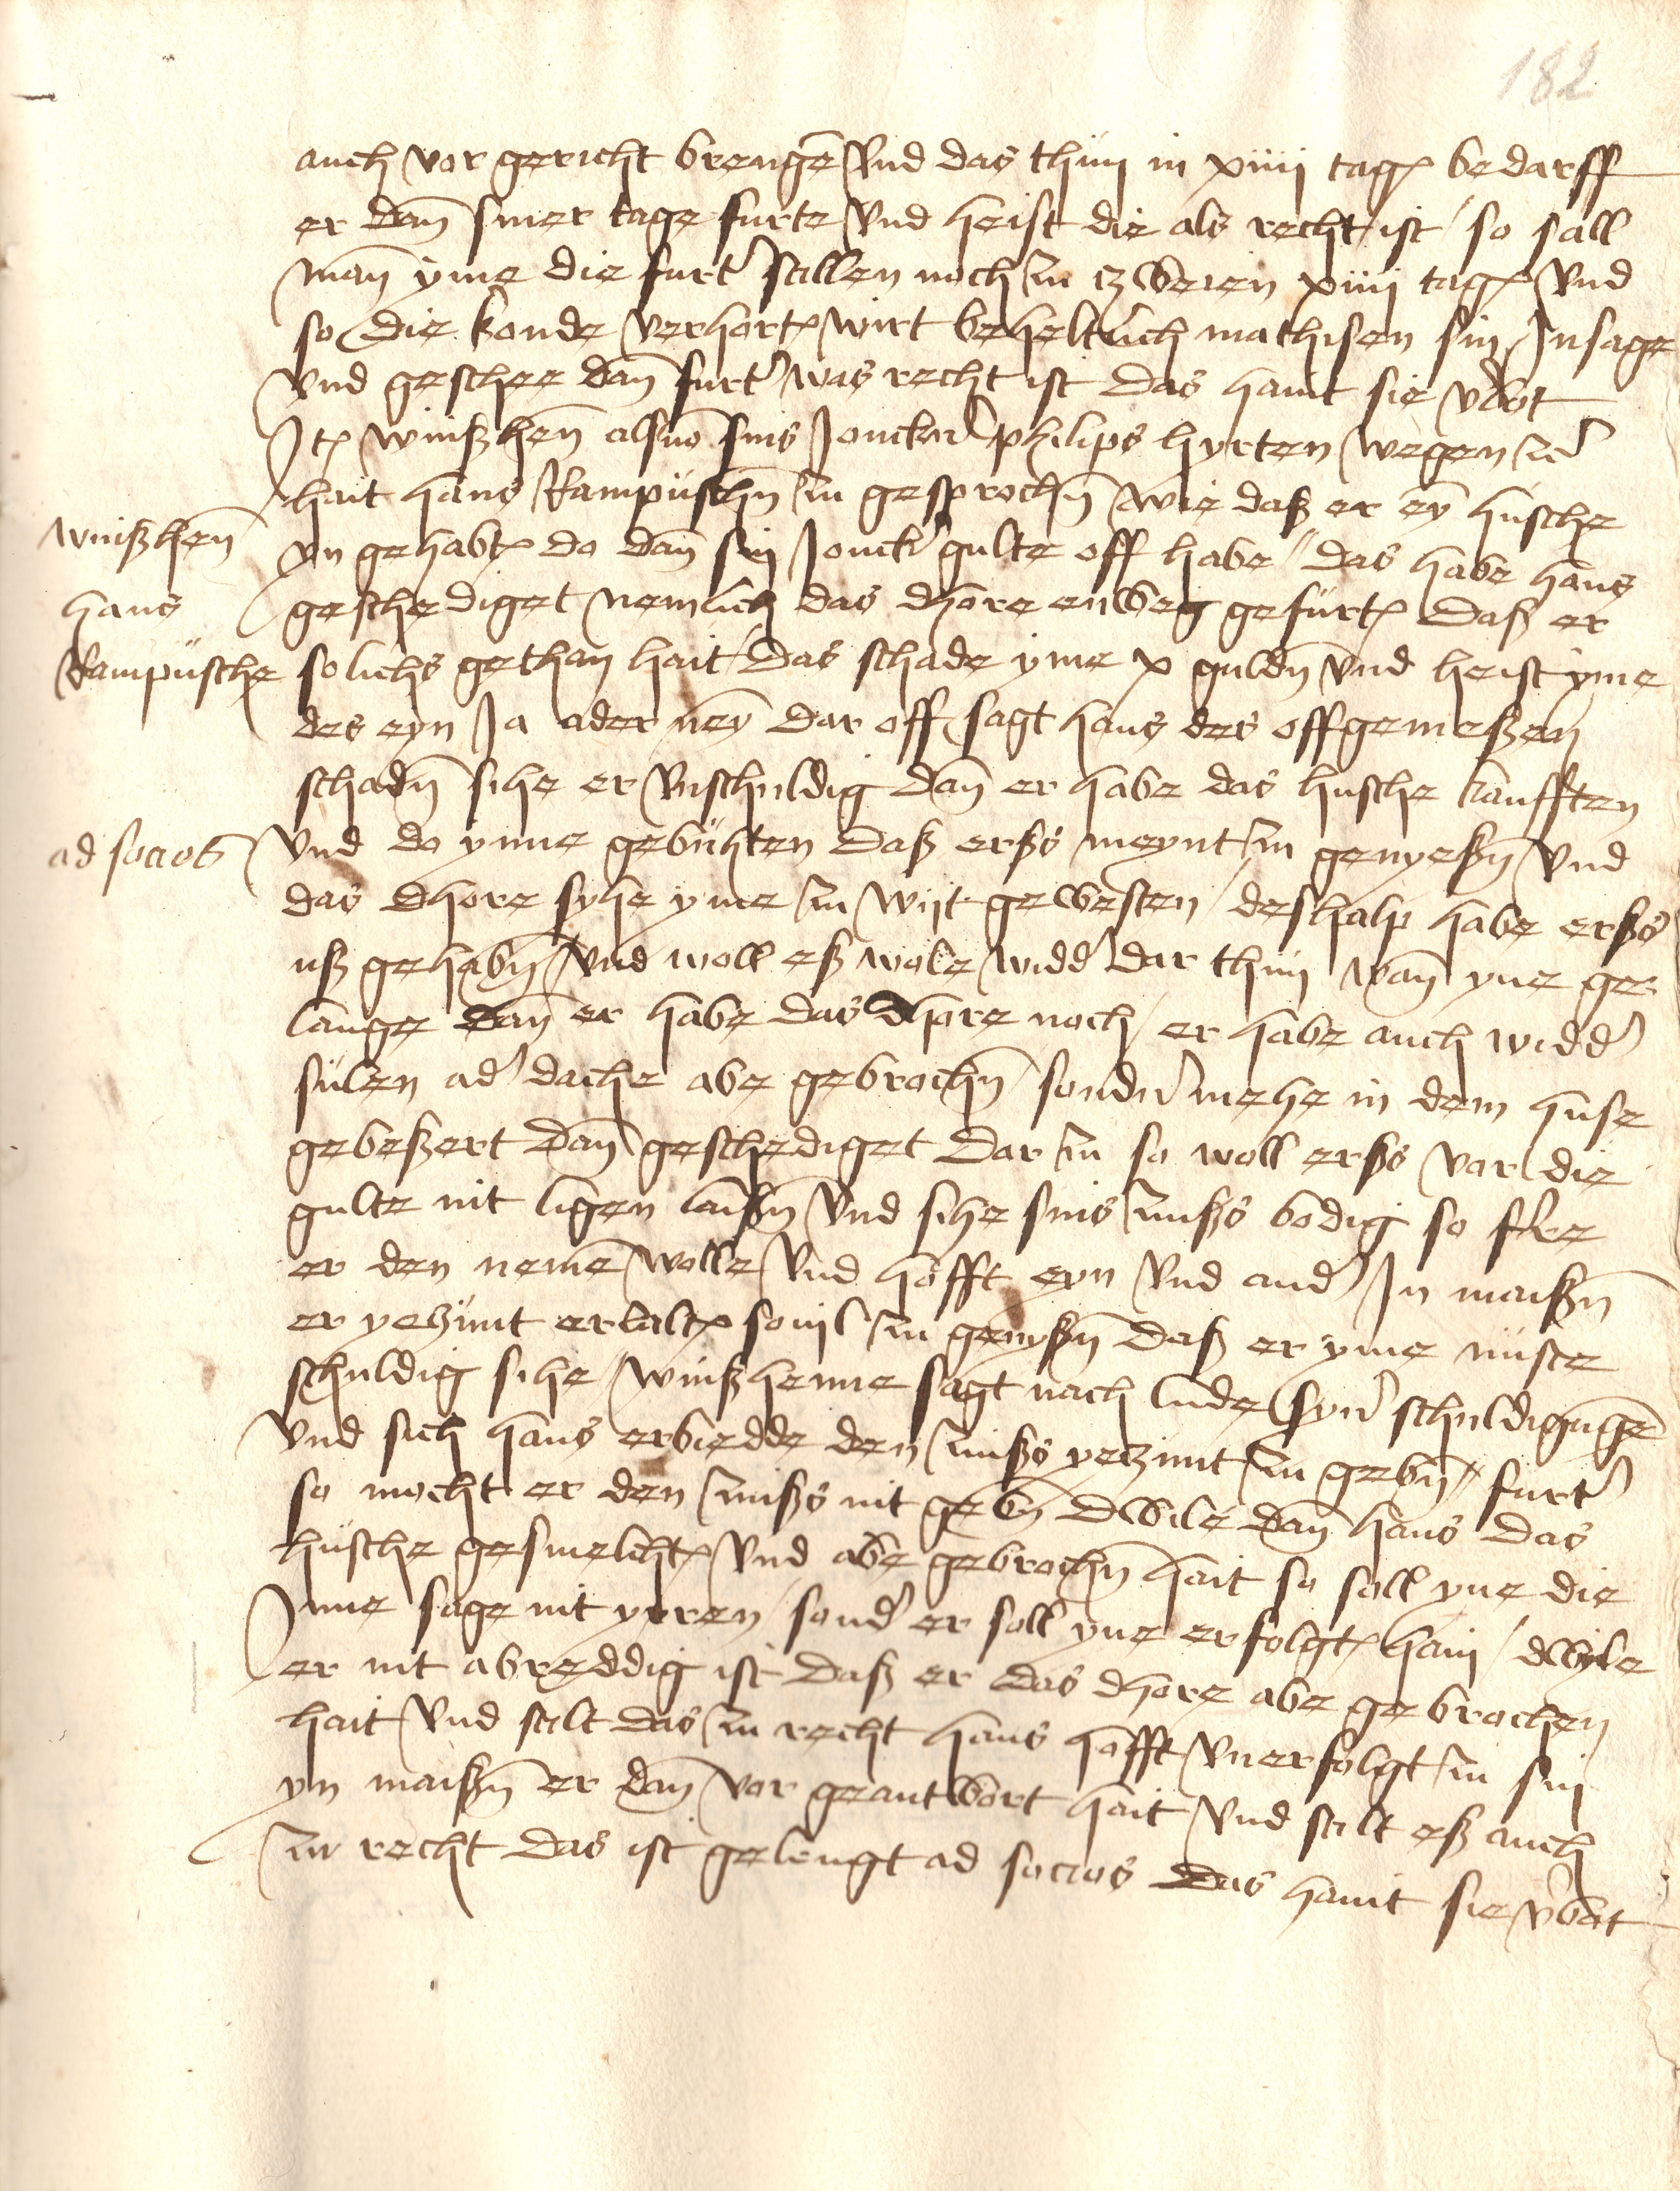 182
auch vor gericht brengē vnd das thun in xiiij tagē bedarff
er dañ siner tage furte vnd heist die als recht ist / so sall
mañ yme die furt' stillen noch zu zweien xiiij tagē vnd
so die konde verhortē wirt beheltlich mathisen sin Insage
vnd geschee dañ furt' was recht ist das haint sie v'bot
Itē winßhen̄ als von sins Jonckern philips hyrten wegen
hait hans Rampüschn̄ zu gesprochn̄ wie daß er eyn̄ hüsche
yn gehabtē do dañ sin Jonck' gulte off habe / das habe hans
geschediget nemlich das dhore enweg gefürtē daß er
solichs gethan hait / das schade yme x guldn̄ vnd heist yme
des eyn Ja ader neyn̄ dar off sagt hans des offgemeßen
schadn̄ sihe er vnschuldig dañ er habe das husche kaufften
vnd do ynne gebuhten daß erßs meynt zu genyeßn̄ vnd
das dhore syhe yme zu wijt gewesten / deshalp habe erßs
uß gehabn̄ vnd woll eß wole widd' dar thun wañ yne ge
lange dañ er habe das dhore noch / er habe auch widd'
sülen ad' dache abe gebrochn̄ / sond'n mehe in dem huse
gebeßert dañ geschediget dar zu so woll erßs vor die
gulte nit ligen laißn̄ vnd sihe sins zinßs bodig so
er den nemē wolle vnd hofft eyn vnd and' In maißn̄
er yetzunt erzaltē souil zu genyßn̄ daß er yme nüste
schuldig sihe / winßhenne sagt nach lude syn' schuldigūgē
vnd sich hans erbiedde den zinßs yetzunt zu gebn̄ / furt'
so mocht er den zinßs nit gebn̄ dwile dañ hans das
hüsche gesmelchtē vnd abe gebrochn̄ hait so soll yne die
Inne sage nit yrren / sond' er soll yne erfolgtē hain / dwyle
er nit abreddig ist daß er das dhore abe gebrochen
hait vnd stilt das zu recht hans hofft vnerfolgt zu sin
yn maißn̄ er dañ vor geantwort hait vnd stilt eß auch
zu recht das ist gelengt ad socios das haint sie v'bot
winßhen̄
hans
Rampüsche
ad socios